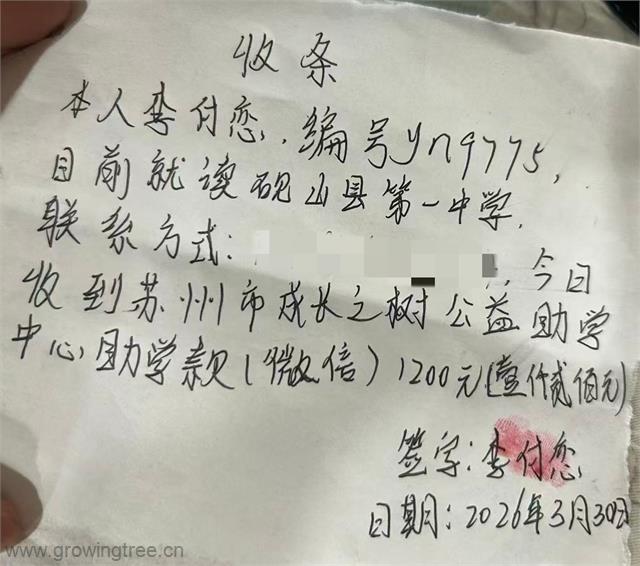 收条
本人李付恋，编号yn9775，
目前就读砚山县第一中学，
联系方式：，今日
收到苏州市成长之树公益助学
中心助学款（微信）1200元（壹仟贰佰元）
签字：李付恋
日期：2026年3月30日
www.growingtree.cn